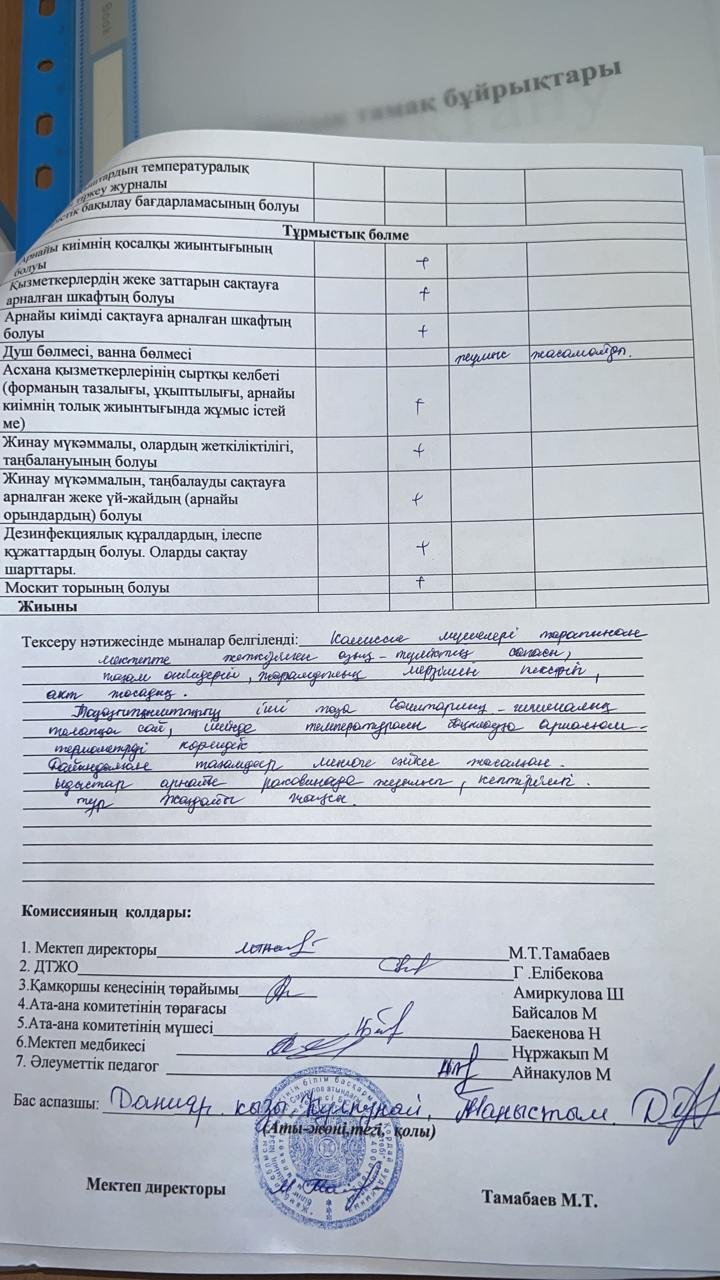 тамақ бұйрықтары
температуралық
журналы
бақылау бағдарламасының болуы
Тұрмыстық бөлме
Арнайы киімнің қосалқы жиынтығының
болуы +
Қызметкерлердің жеке заттарын сақтауға
арналған шкафтың болуы +
Арнайы киімді сақтауға арналған шкафтың
болуы +
Душ бөлмесі, ванна бөлмесі жұмыс жасамайды.
Асхана қызметкерлерінің сыртқы келбеті
(форманың тазалығы, ұқыптылығы, арнайы
киімнің толық жиынтығында жұмыс істей
ме) +
Жинау мүкәммалы, олардың жеткіліктілігі,
таңбалануының болуы +
Жинау мүкәммалын, таңбалауды сақтауға
арналған жеке үй-жайдың (арнайы
орындардың) болуы +
Дезинфекциялық құралдардың, ілеспе
құжаттардың болуы. Оларды сақтау
шарттары. +
Москит торының болуы +
Жиыны
Тексеру нәтижесінде мыналар белгіленді: Комиссия мүшелері тарапынан
мектепте жеткізілген азық-түліктің сапасын,
тағам өнімдерін, жарамдылық мерзімін тексеріп,
акт жасадық.
іші таза санитарлық-гигиеналық
талапқа сай, ішінде температурасын бақылауға арналған
термометрді көрдік
Дайындалған тағамдар менюге сәйкес жасалған.
Ыдыстар арнайы раковинада жуылып, кептірілгі
тұр жағдайы жақсы.
Комиссияның қолдары:
1. Мектеп директоры М.Т.Тамабаев
2. ДТЖО Г .Елібекова
3.Қамқоршы кеңесінің төрайымы Амиркулова Ш
4.Ата-ана комитетінің төрағасы Байсалов М
5.Ата-ана комитетінің мүшесі Баекенова Н
6.Мектеп медбикесі Нұржақып М
7. Әлеуметтік педагог Айнакулов М
Бас аспазшы: Данияр қызы Таныстым
(Аты-жөні,тегі, қолы)
Мектеп директоры Тамабаев М.Т.